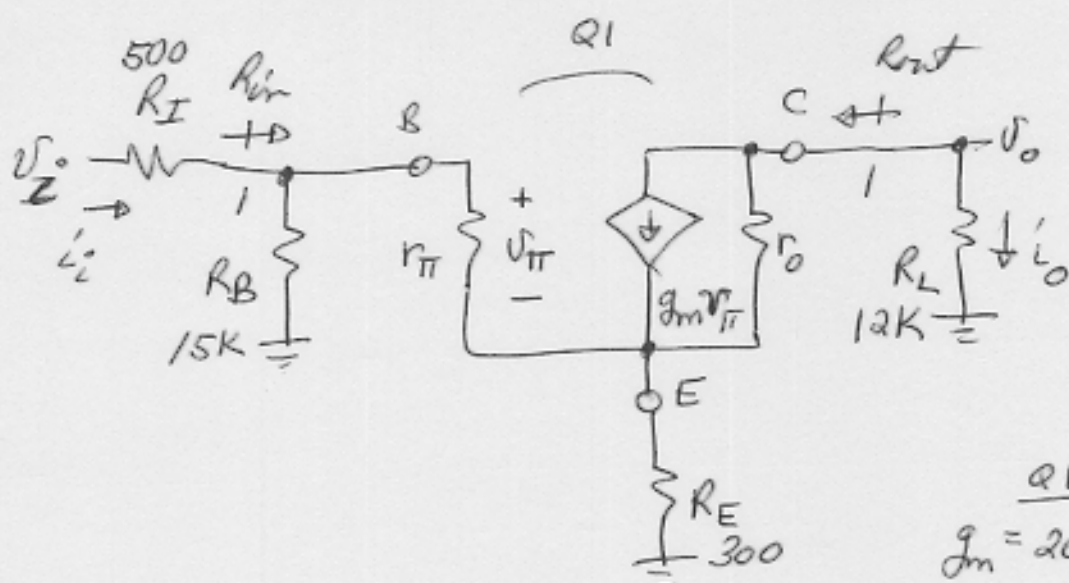 Q1
500
R_I
Rin
Rout
B
C
v_i
1
1
v_o
i_i
R_B
15K
r_π
+
v_π
−
g_m v_π
r_o
R_L
12K
i_o
E
R_E
300
Q1
g_m = 20